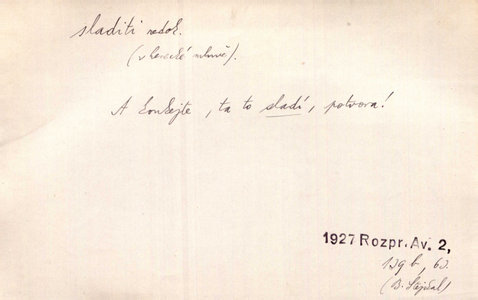 sladiti nedok.
(v herecké mluvě).
A koukejte, ta to sladí, potvora!
1927 Rozpr. Av. 2,
139 b, 63.
(B.